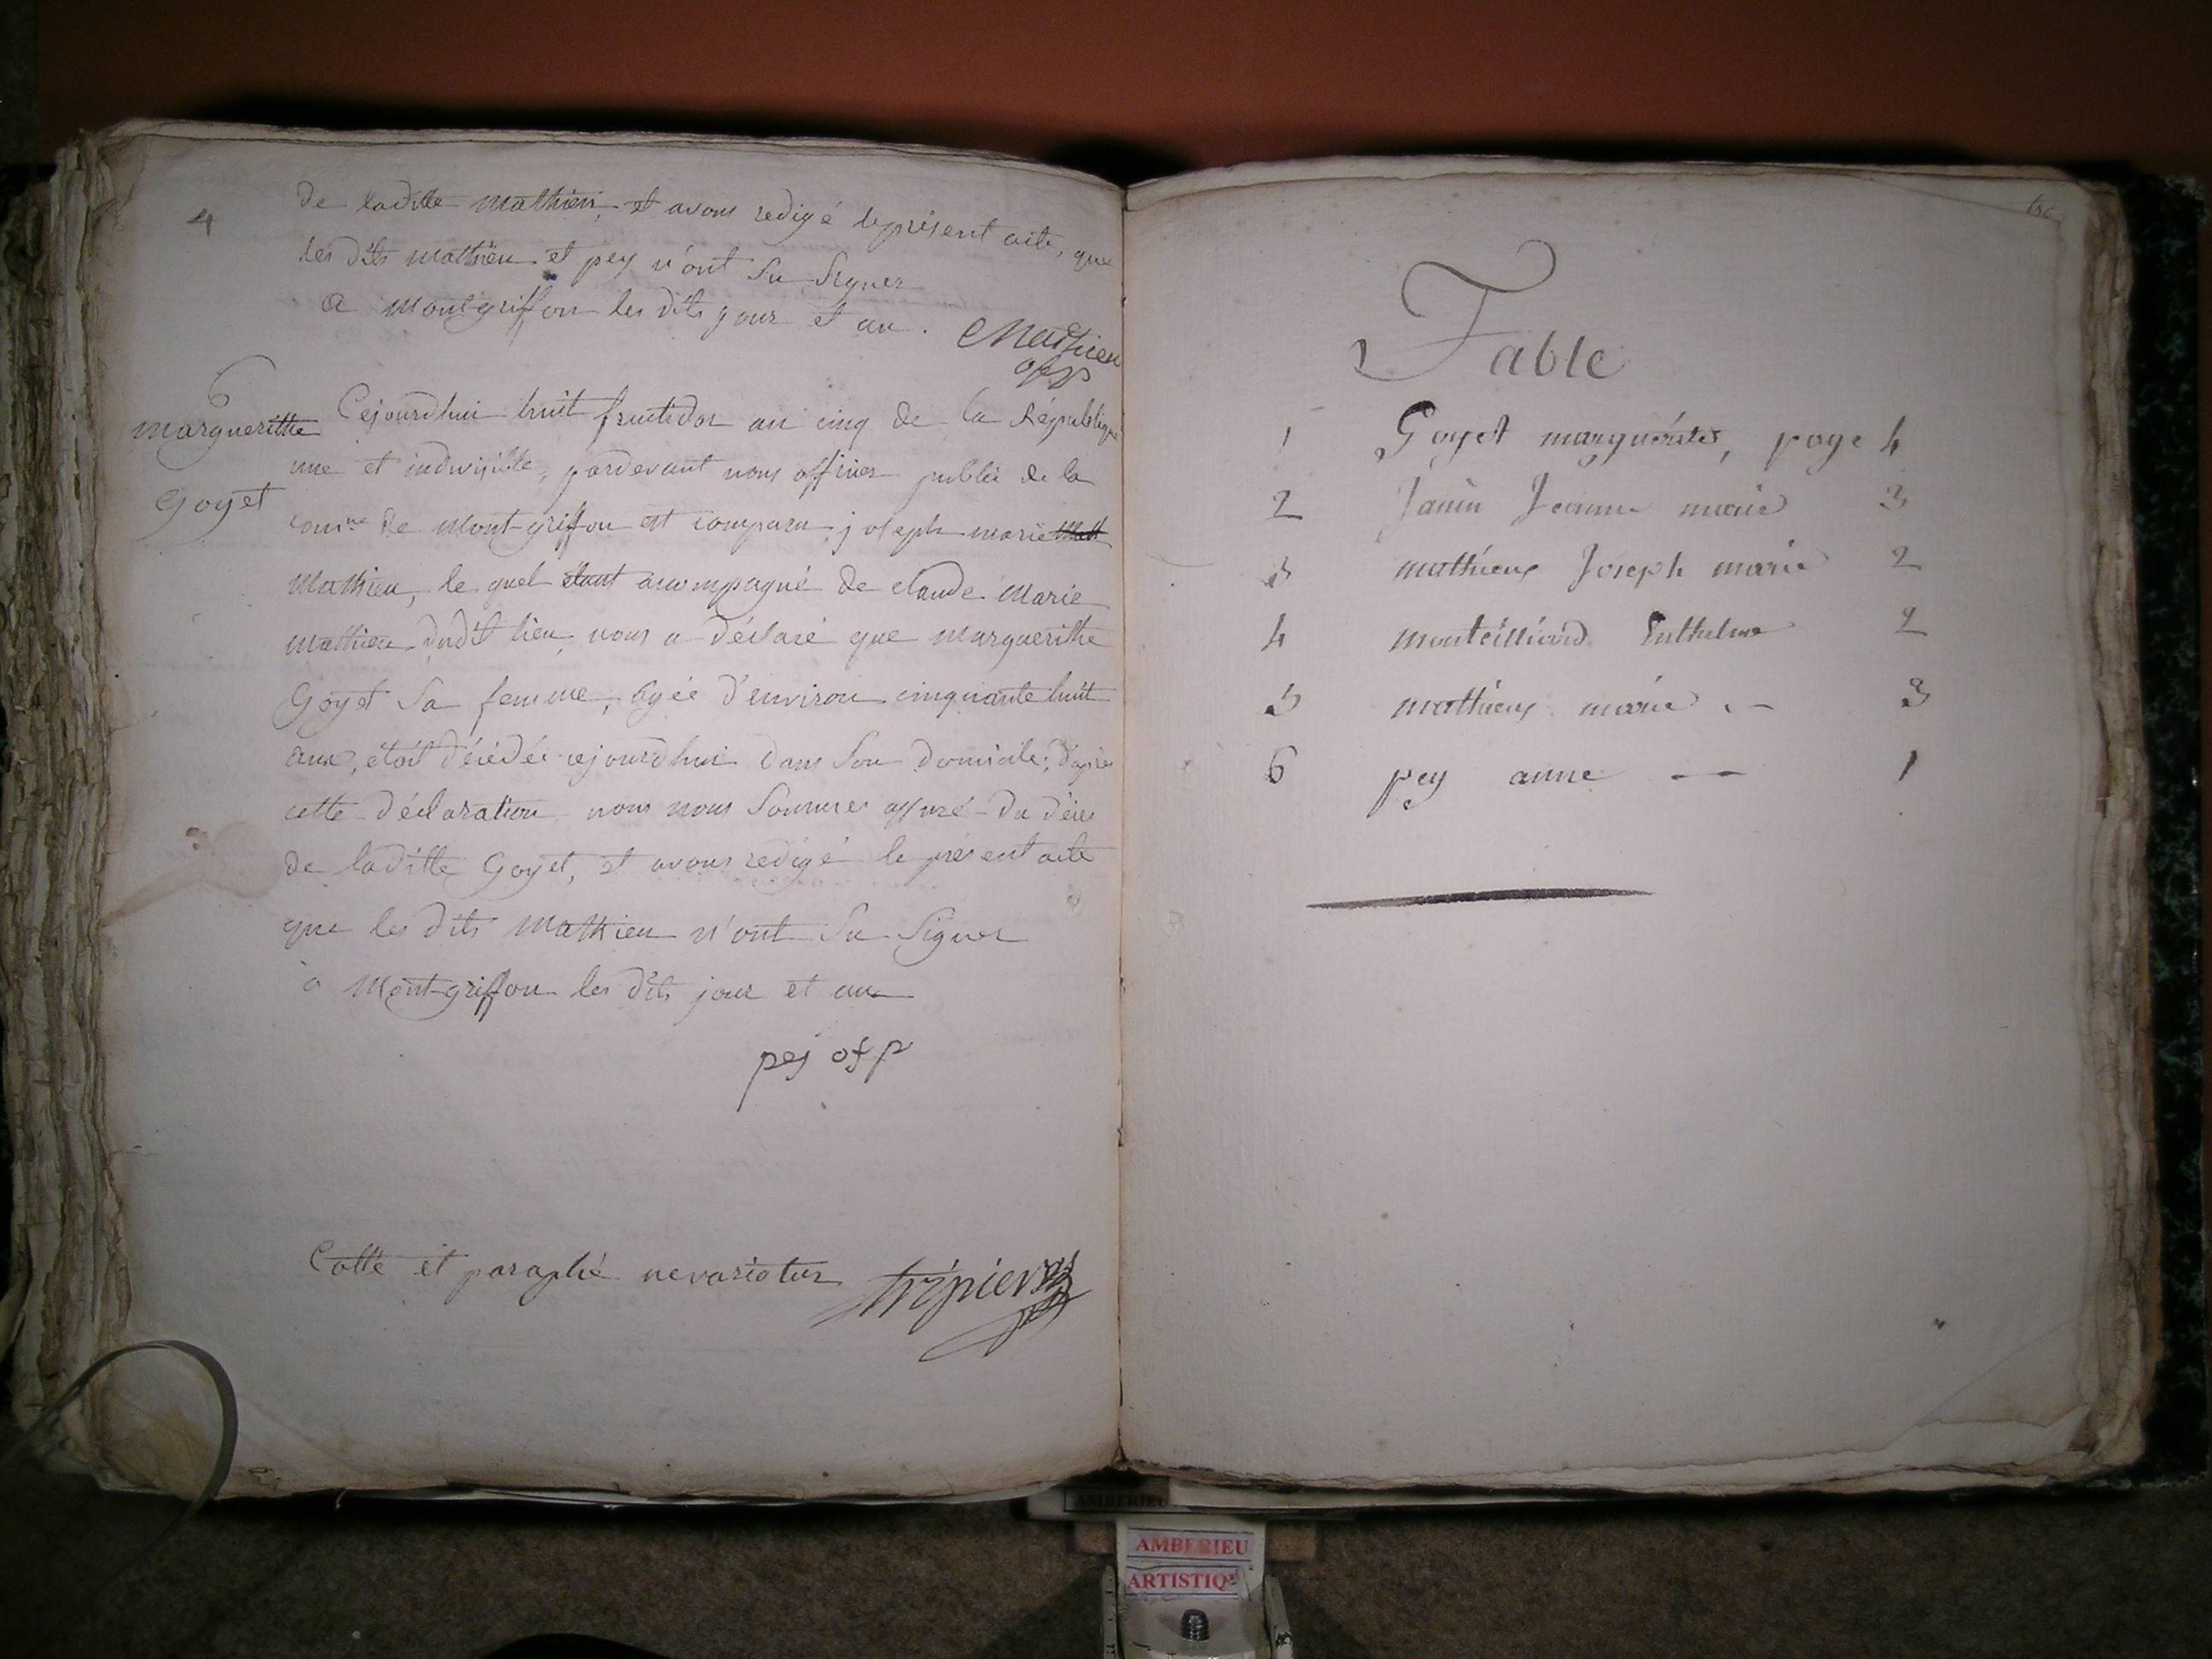 4
de laditte mathieu, et avons redigé le présent acte, que
les dits mathieu et pey n'ont Su Signer
a montgriffon les dits jour et an.
Mathieu
ofp
6
marguerithe
Goyet
Cejourdhui huit fructidor an cinq de la République
une et indivisible, pardevant nous officier public de la
comne de mont-griffon est comparu joseph marie
Mathieu, le quel étant accompagné de claude Marie
Mathieu dudit lieu, nous a déclaré que marguerithe
Goyet Sa femme, agée d'environ cinquante huit
ans, étoit décédée cejourdhui dans Son domicile; d'après
cette déclaration nous nous Sommes assuré du décès
de laditte Goyet, et avons redigé le présent acte
que les dits Mathieu n'ont Su Signer
à Mont-griffon les dits jour et an
pej ofp
Cotté et paraphé nevarietur
Table
1 Goyet marguérite, page 4
2 Janin Jeanne marie 3
3 mathieux Joseph marie 2
4 Anthelme 2
5 mathieux marie 3
6 pey anne 1
AMBERIEU
AMBERIEU
ARTISTIQ